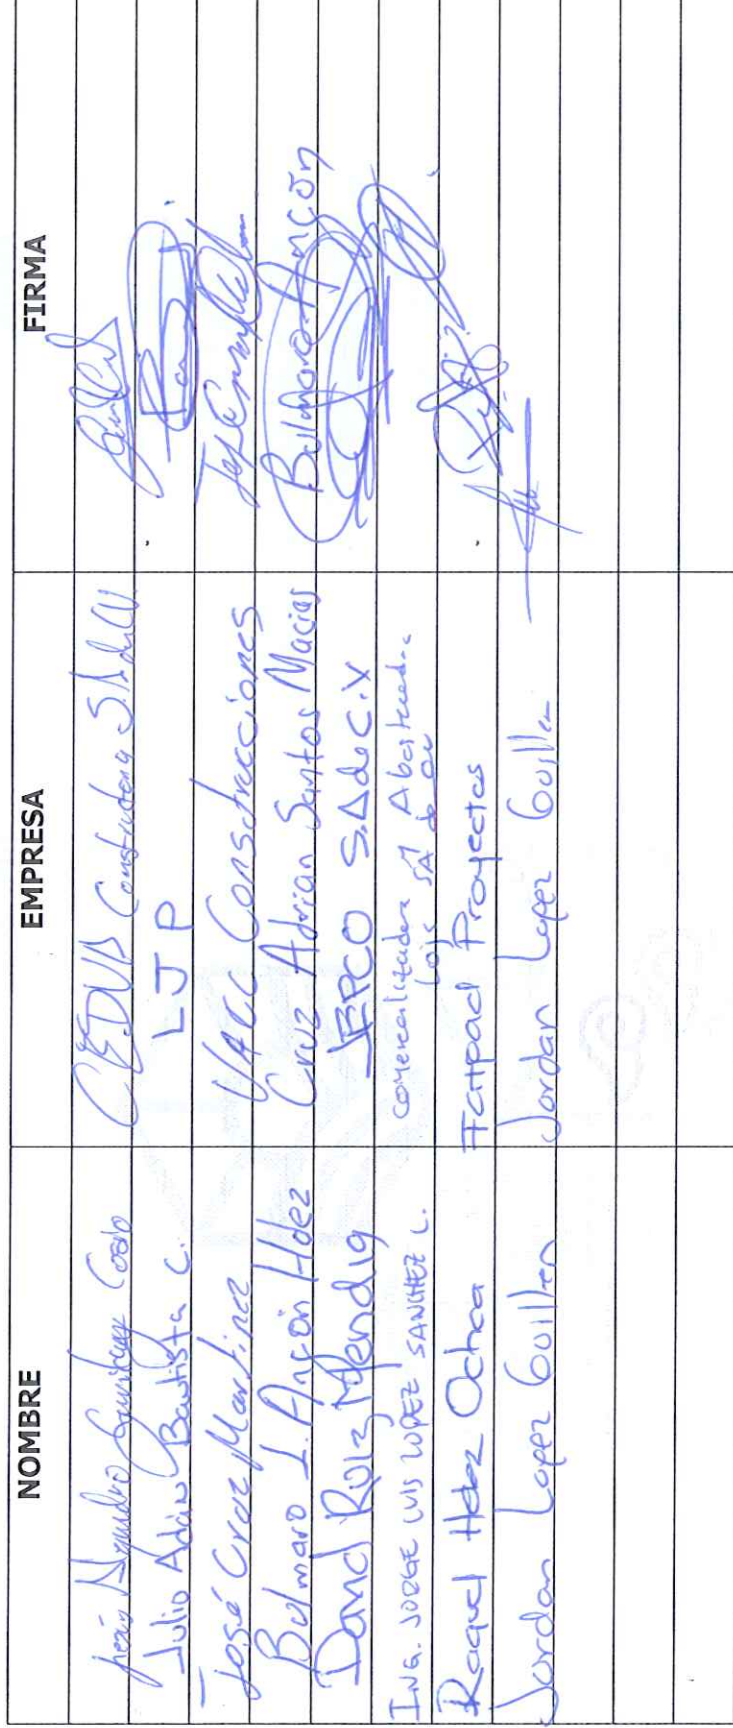 NOMBRE EMPRESA FIRMA
CEDUB Constructora S.A de CV
Julio Adán Bautista C. LJP
José Cruz Martinez VACC Construcciones
Belmaro I. Ançón Hdez Cruz Adrian Santos Macias Ançón
David Ruiz Mendig JEPCO S.A de C.V
ING. JORGE LUIS LOPEZ SANCHEZ L. Comercializadora y Abastecedora
Lois SA de cv
Raquel Hdez Ochoa Fatpad Proyectos
Jordan Lopez Guillen Jordan Lopez Guillen